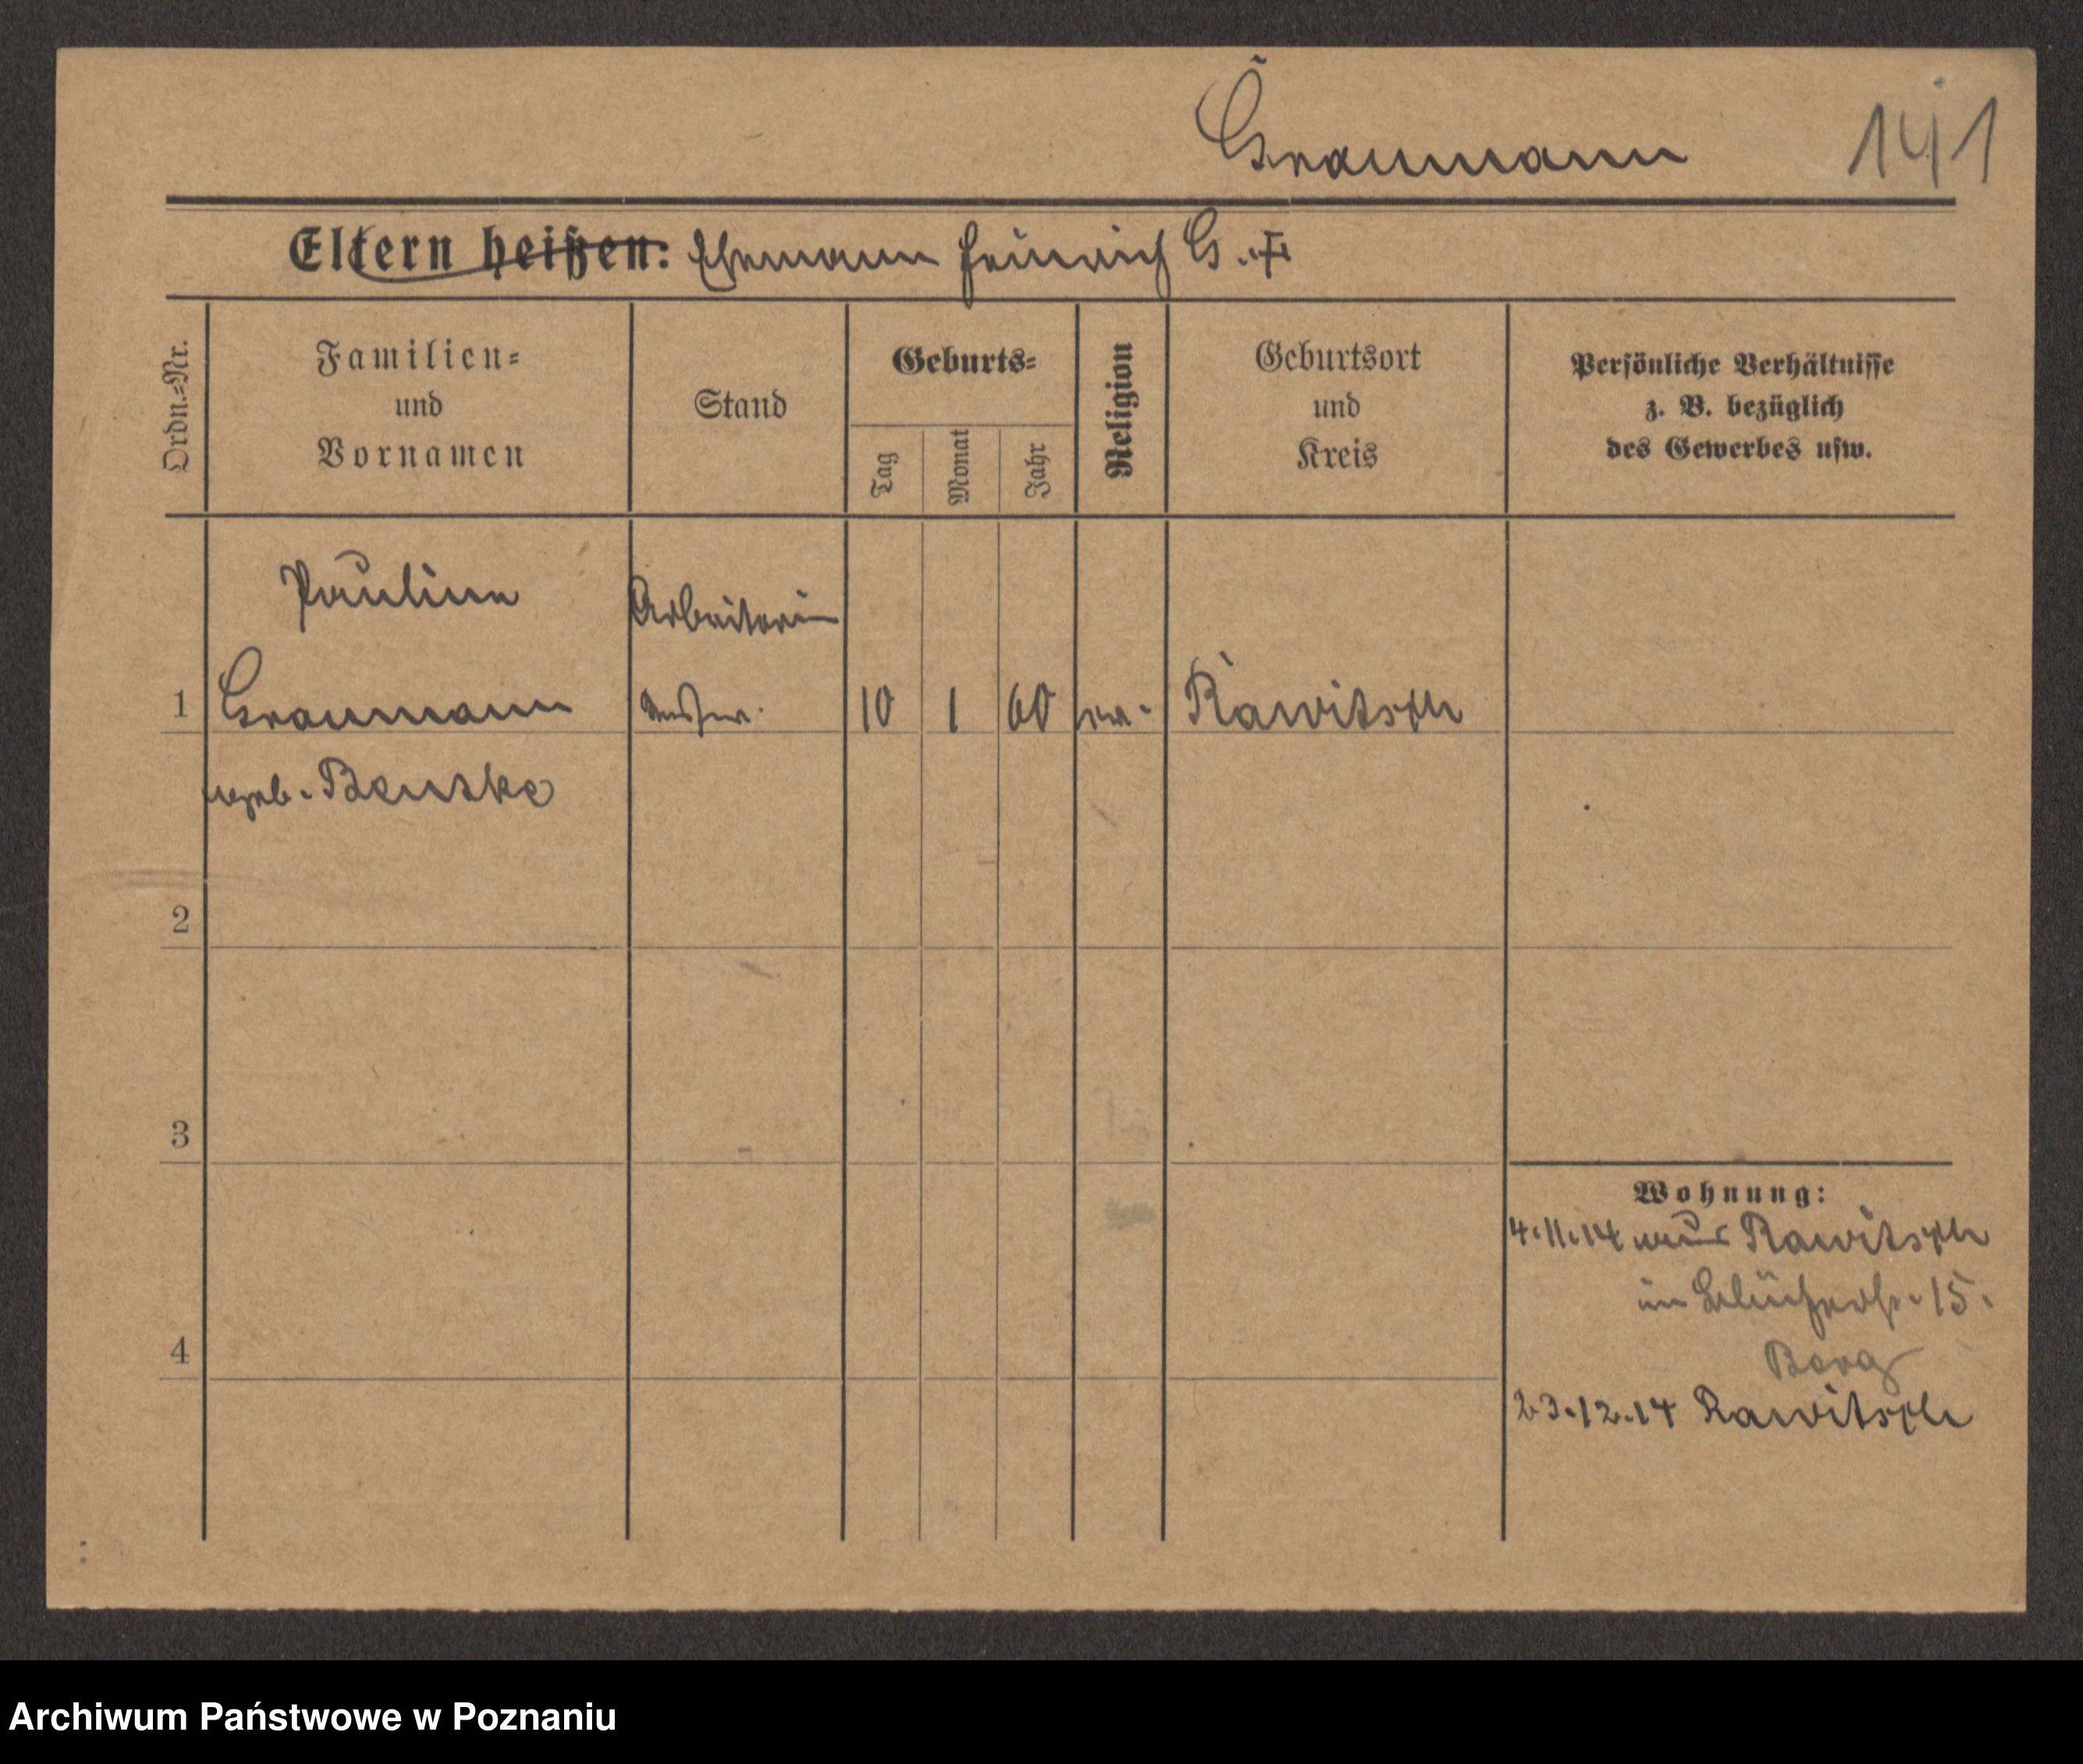 Graumann 141
Eltern heißen: Ehemann Heinrich G. †
Ordn.=Nr.
Familien=
und
Vornamen
Stand
Geburts=
Tag
Monat
Jahr
Religion
Geburtsort
und
Kreis
Persönliche Verhältnisse
z. B. bezüglich
des Gewerbes usw.
Pauline Arbeiterin
1 Graumann 10 1 60 Rawitsch
geb. Benske
2
3
4
Wohnung:
4.11.14 aus Rawitsch
in Blücherstr. 15.
Berg
23.12.14 Rawitsch
Archiwum Państwowe w Poznaniu